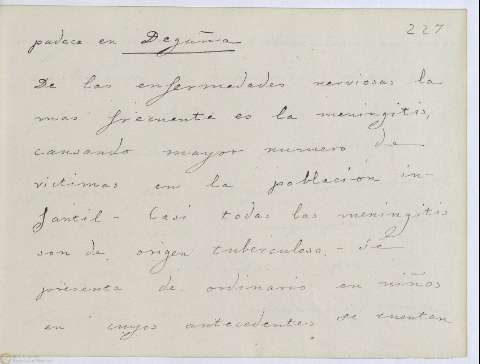 227
padece en Degaña
De las enfermedades nerviosas la
mas frecuente es la meningitis,
causando mayor numero de
victimas en la población in-
fantil - Casi todas las meningitis
son de origen tuberculoso. - Se
presenta de ordinario en niños
en cuyos antecedentes se cuentan